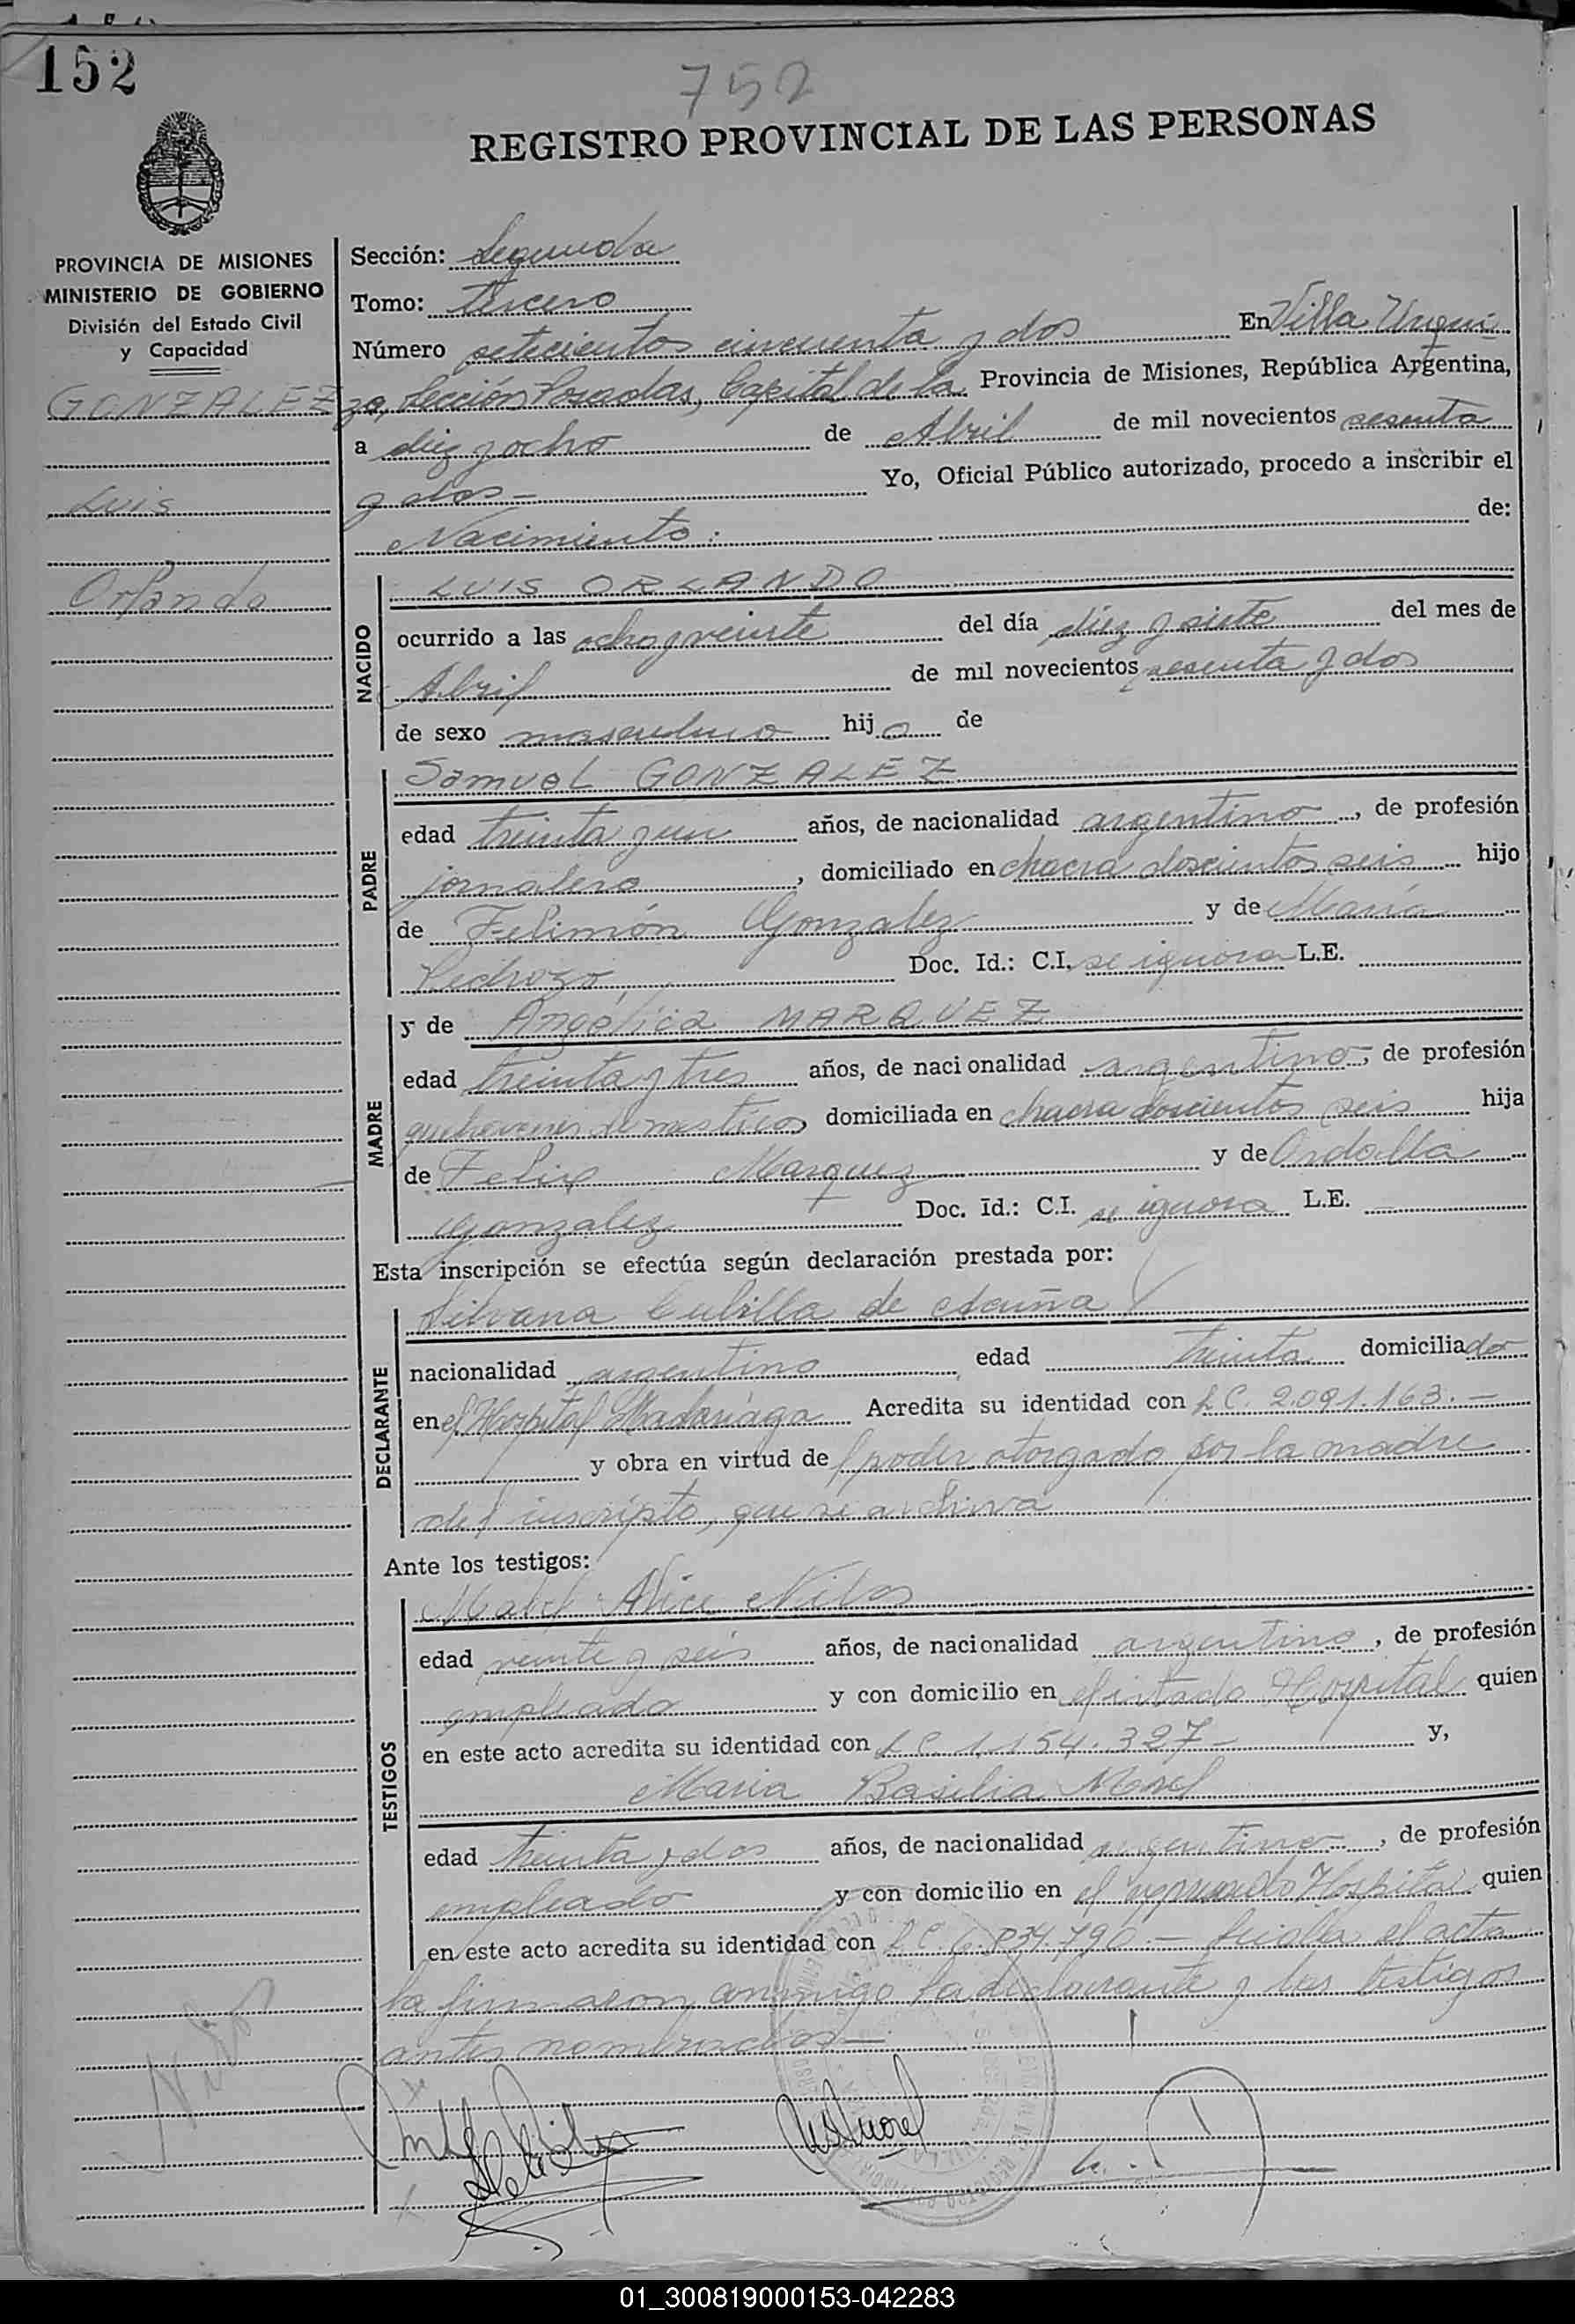 152
752
REGISTRO PROVINCIAL DE LAS PERSONAS
PROVINCIA DE MISIONES
MINISTERIO DE GOBIERNO
División del Estado Civil
y Capacidad
GONZALEZ
Luis
Orlando
Sección: Segunda
Tomo: tercero
Número setecientos cincuenta y dos En Villa Urqui
za, Sección Posadas, Capital de la Provincia de Misiones, República Argentina,
a diez y ocho de Abril de mil novecientos sesenta
y dos- Yo, Oficial Público autorizado, procedo a inscribir el
Nacimiento: de:
NACIDO
LUIS ORLANDO
ocurrido a las ocho y veinte del día diez y siete del mes de
Abril de mil novecientos sesenta y dos
de sexo masculino hijo de
PADRE
Samuel GONZALEZ
edad treinta y un años, de nacionalidad argentino, de profesión
jornalero, domiciliado en chacra doscientos seis hijo
de Felimón Gonzalez y de María
Pedrozo Doc. Id.: C.I. se ignora L.E.
MADRE
y de Angélica MARQUEZ
edad treinta y tres años, de nacionalidad argentino, de profesión
quehaceres domésticos domiciliada en chacra doscientos seis hija
de Felix Marquez y de
Gonzalez Doc. Id.: C.I. se ignora L.E. -
Esta inscripción se efectúa según declaración prestada por:
DECLARANTE
Silvana Cubilla de Acuña
nacionalidad argentino, edad treinta domiciliado
en el Hospital Madariaga Acredita su identidad con L.C. 2.091.163.-
y obra en virtud del poder otorgado por la madre
del inscripto, que se archiva
Ante los testigos:
TESTIGOS
Mabel Alice
edad veinte y seis años, de nacionalidad argentino, de profesión
empleado y con domicilio en el citado Hospital quien
en este acto acredita su identidad con L.C. 1.154.327- y,
Maria Basilia Morel
edad treinta y dos años, de nacionalidad argentino, de profesión
empleado y con domicilio en el Hospital quien
en este acto acredita su identidad con L.C. el acta
la firmaron conmigo la declarante y los testigos
antes nombrados-
01_300819000153-042283